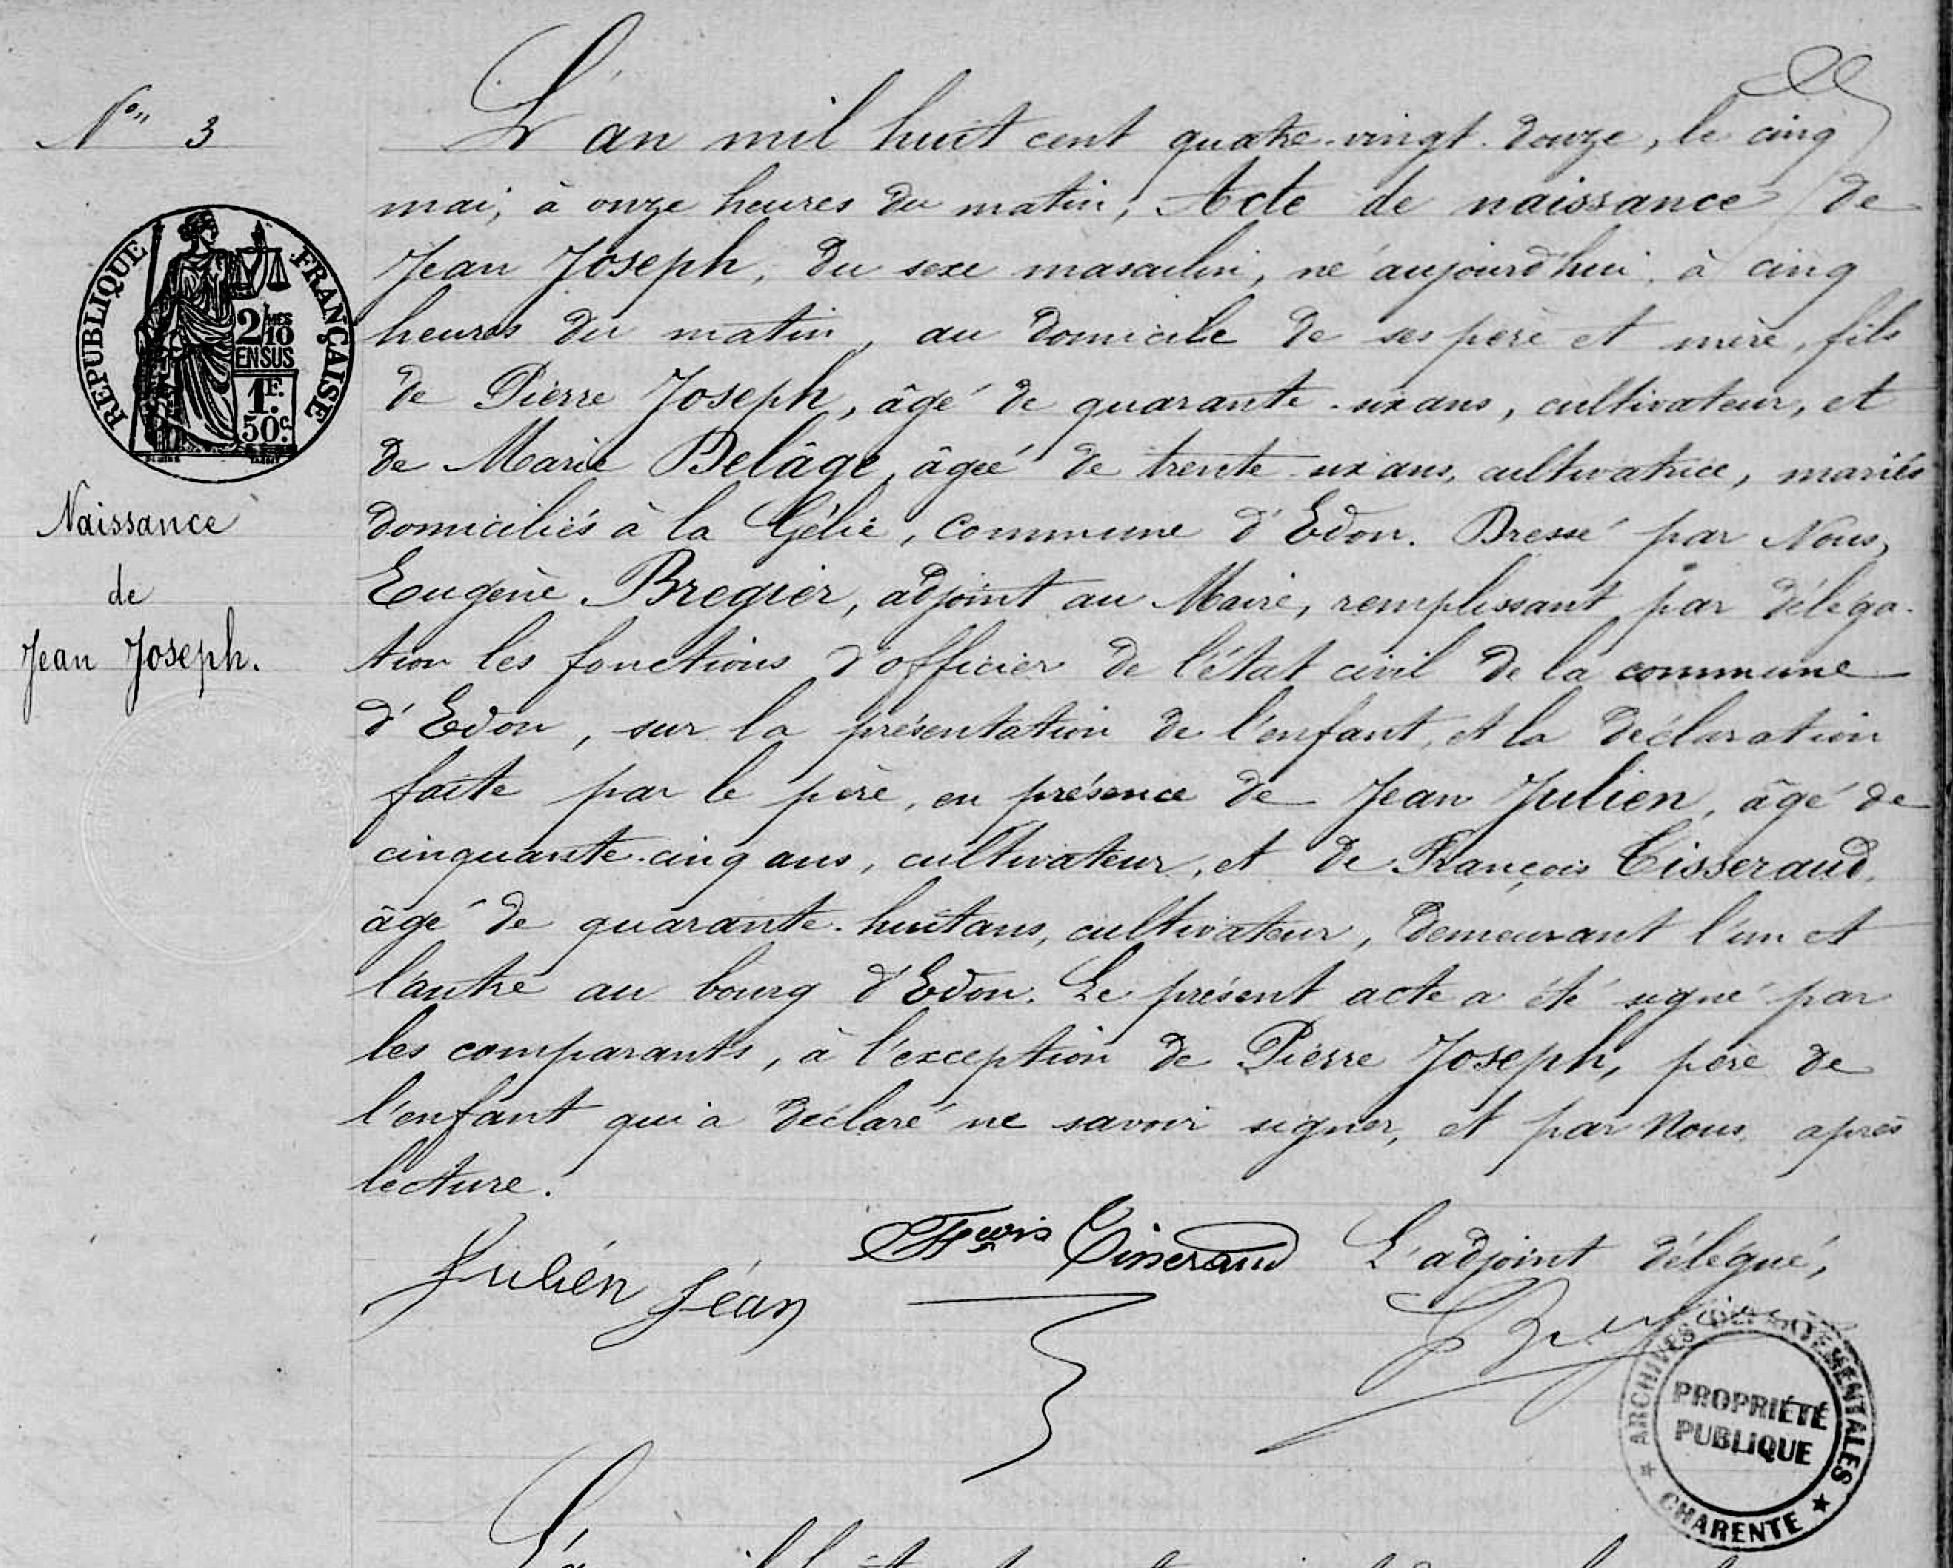 Non 3
L'an mil huit cent quatre-vingt-douze, le cinq
mai, à onze heures du matin, Acte de naissance de
Jean Joseph, du sexe masculin, né aujourd'hui, à cinq
heures du matin, au domicile de ses père et mère, fils
de Pierre Joseph, âgé de quarante-six ans, cultivateur, et
de Marie Delâge, âgée de trente-six ans, cultivatrice, mariés
domiciliés à la Gélie, commune d'Edon. Dressé par Nous,
Eugène Bregier, adjoint au Maire, remplissant par déléga-
tion les fonctions d'officier de l'état civil de la commune
d'Edon, sur la présentation de l'enfant, et la déclaration
faite par le père, en présence de Jean Julien, âgé de
cinquante-cinq ans, cultivateur, et de François Tisseraud,
âgé de quarante-huit ans, cultivateur, demeurant l'un et
l'autre au bourg d'Edon. Le présent acte a été signé par
les comparants, à l'exception de Pierre Joseph, père de
l'enfant qui a déclaré ne savoir signer, et par Nous, après
lecture.
Naissance
de
Jean Joseph.
RÉPUBLIQUE FRANÇAISE
2/10 MES
EN SUS
1F.
50c.
Julien Jean
Fçois Tisseraud
L'adjoint délégué,
ARCHIVES DÉPARTEMENTALES
PROPRIÉTÉ
PUBLIQUE
★ CHARENTE ★